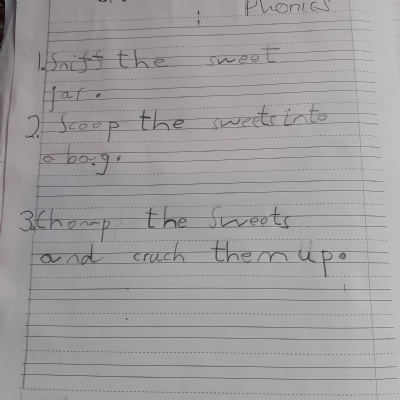 Phonics
1. Sniff the sweet
jar.
2. Scoop the sweets into
a bag.
3. Chomp the sweets
and cruch them up.